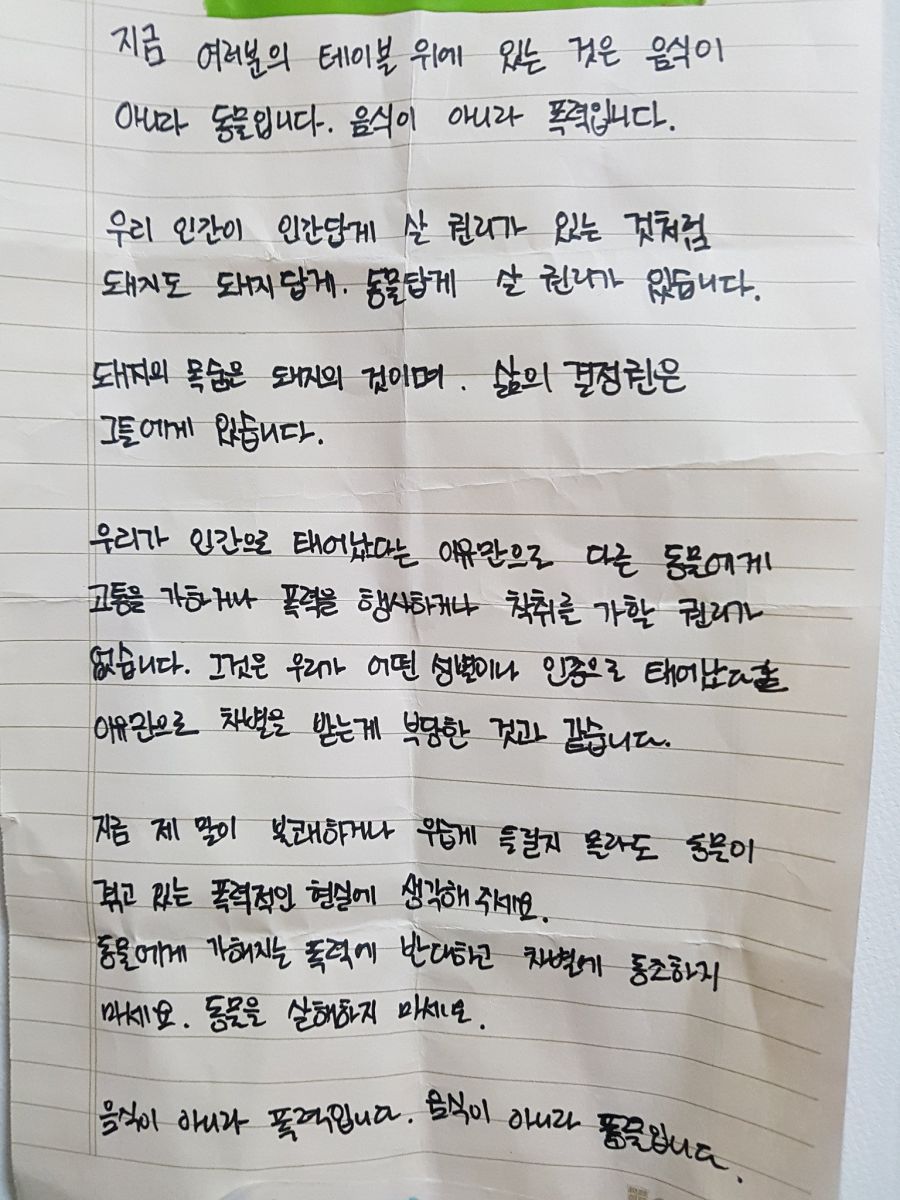 지금 여러분의 테이블 위에 있는 것은 음식이
아니라 동물입니다. 음식이 아니라 폭력입니다.
우리 인간이 인간답게 살 권리가 있는 것처럼
돼지도 돼지답게. 동물답게 살 권리가 있습니다.
돼지의 목숨은 돼지의 것이며. 삶의 결정권은
그들에게 있습니다.
우리가 인간으로 태어났다는 이유만으로 다른 동물에게
고통을 가하거나 폭력을 행사하거나 착취를 가할 권리가
없습니다. 그것은 우리가 어떤 성별이나 인종으로
이유만으로 차별을 받는게 부당한 것과 같습니다.
지금 제 말이 불쾌하거나 우습게 들릴지 몰라도 동물이
겪고 있는 폭력적인 현실에 생각해주세요.
동물에게 가해지는 폭력에 반대하고 차별에 동조하지
마세요. 동물을 살해하지 마세요.
음식이 아니라 폭력입니다. 음식이 아니라 동물입니다.